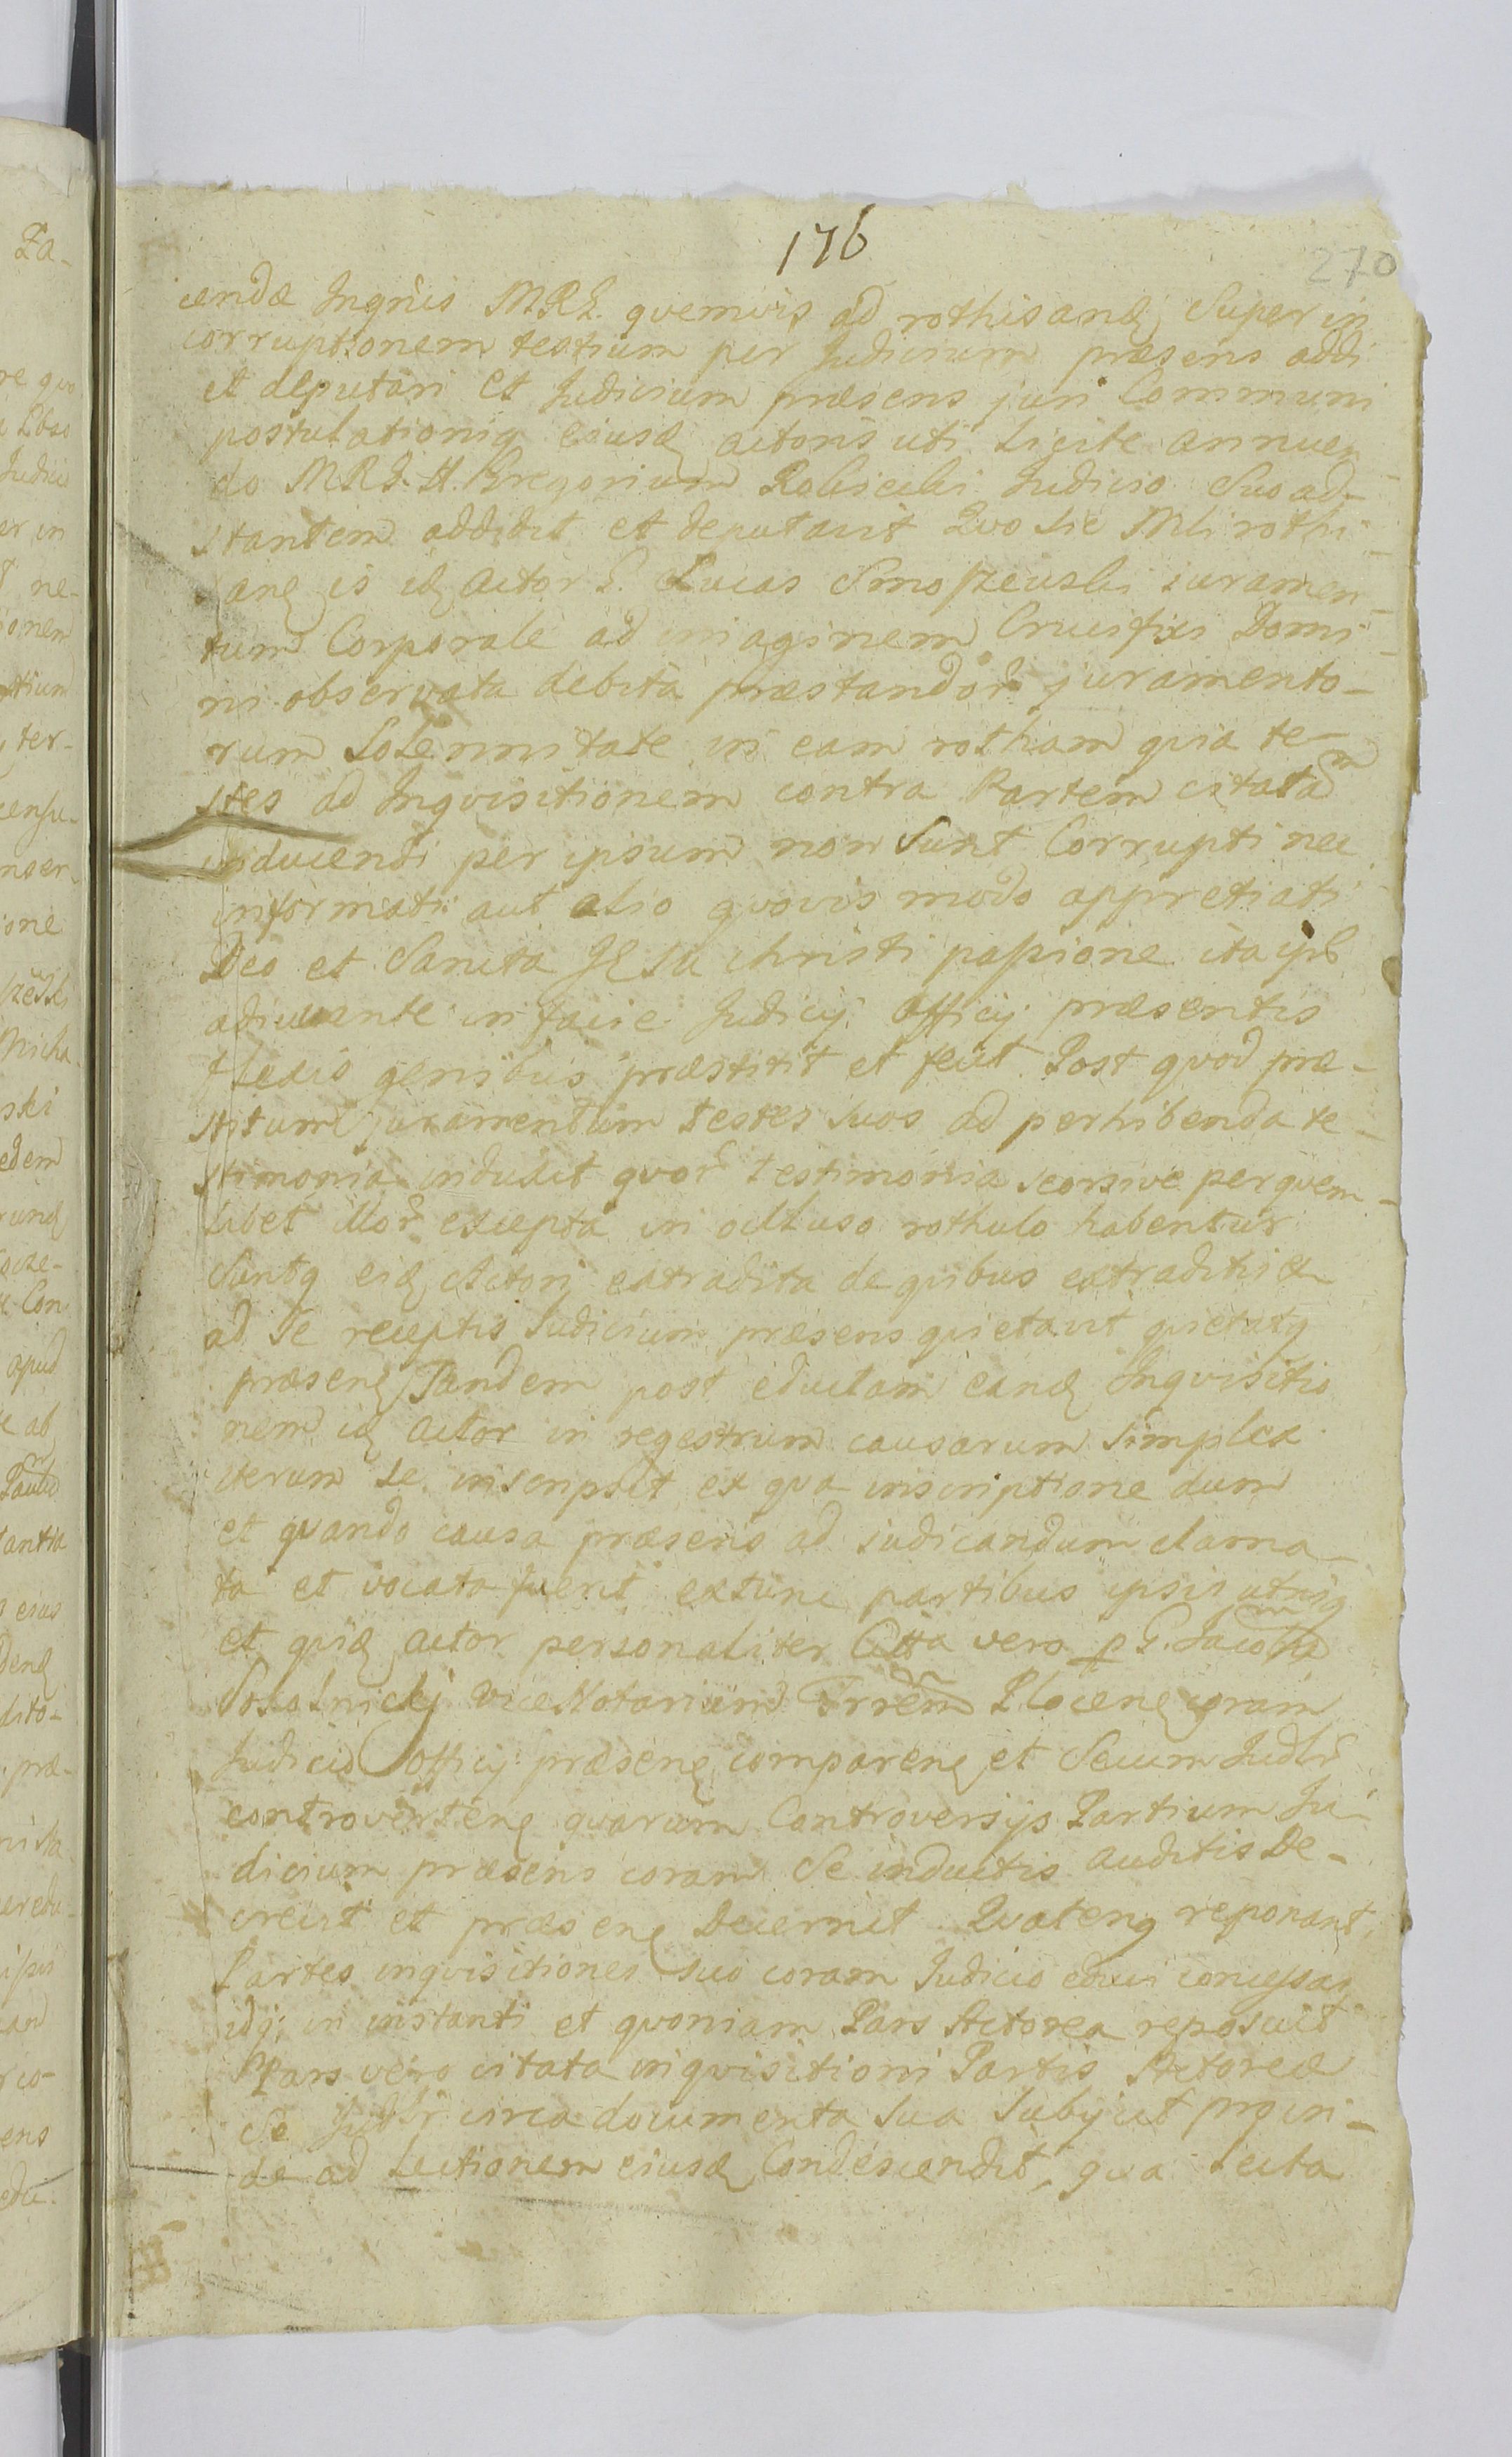 176
270
cendæ Inqnis MRG. quemvis ad rothisand Super in
corruptionem testium per Judicium præsens addi
et deputari Et Judicium præsens juri Communi
postulationiq eiusd actoris uti Licite annuen
do MRG. H. Gregorium Judicio Suo ad-
stantem addidit et deputavit Quo sic Mli rothi-
san is id Actor G. Lucas iuramen-
tum Corporale ad imaginem Crucifixi Domi-
ni observata debita præstandor juramento-
rum Solennitate in eam rotham quia te-
stes ad Inqvisitionem contra Partem citatam
inducendi per ipsum non Sunt Corrupti nec
informati aut alio qvovis modo appretiati
Deo et Sancta JESu christi passione ita ipso
adiuvante in facie Judicij Officij præsentis
flexis genibus præstitit et fecit Post qvod præ-
stitum juramentum testes suos ad perhibenda te-
stimonia induxit qvor testimonia seorsive per qvem-
libet illor excepta in occluso rothulo habentur
Suntq eid Actori extradita de qvibus extraditis &
ad Se receptis Judicium præsens qvietavit qvietatq
præsen Tandem post eductam eand Inqvisitio
nem id Actor in regestrum causarum simplex
iterum se inscripsit ex qva inscriptione dum
et qvando causa præsens ad iudicandum clama-
ta et vocata fuerit extunc partibus ipsis utrisq
et qvid actor personaliter Citta vero p G. Jacobum
ViceNotarium Trrem Plocen coram
Judicio Officij præsen comparen et Secum Judlr
controverten qvarum Controversijs Partium Ju-
dicium præsens coram Se inductis auditis De-
crevit et præsen Decernit Qvatenq reponant
Partes inqvisitiones suo coram Judicio educi concessas
idq; in instanti et qvoniam Pars Actorea reposuit
Pars vero citata inqvisitioni Partis Actoreæ
Se Judlr circa documenta sua Subijcit proin-
de ad Lectionem eiusd Condescendit, qva lecta